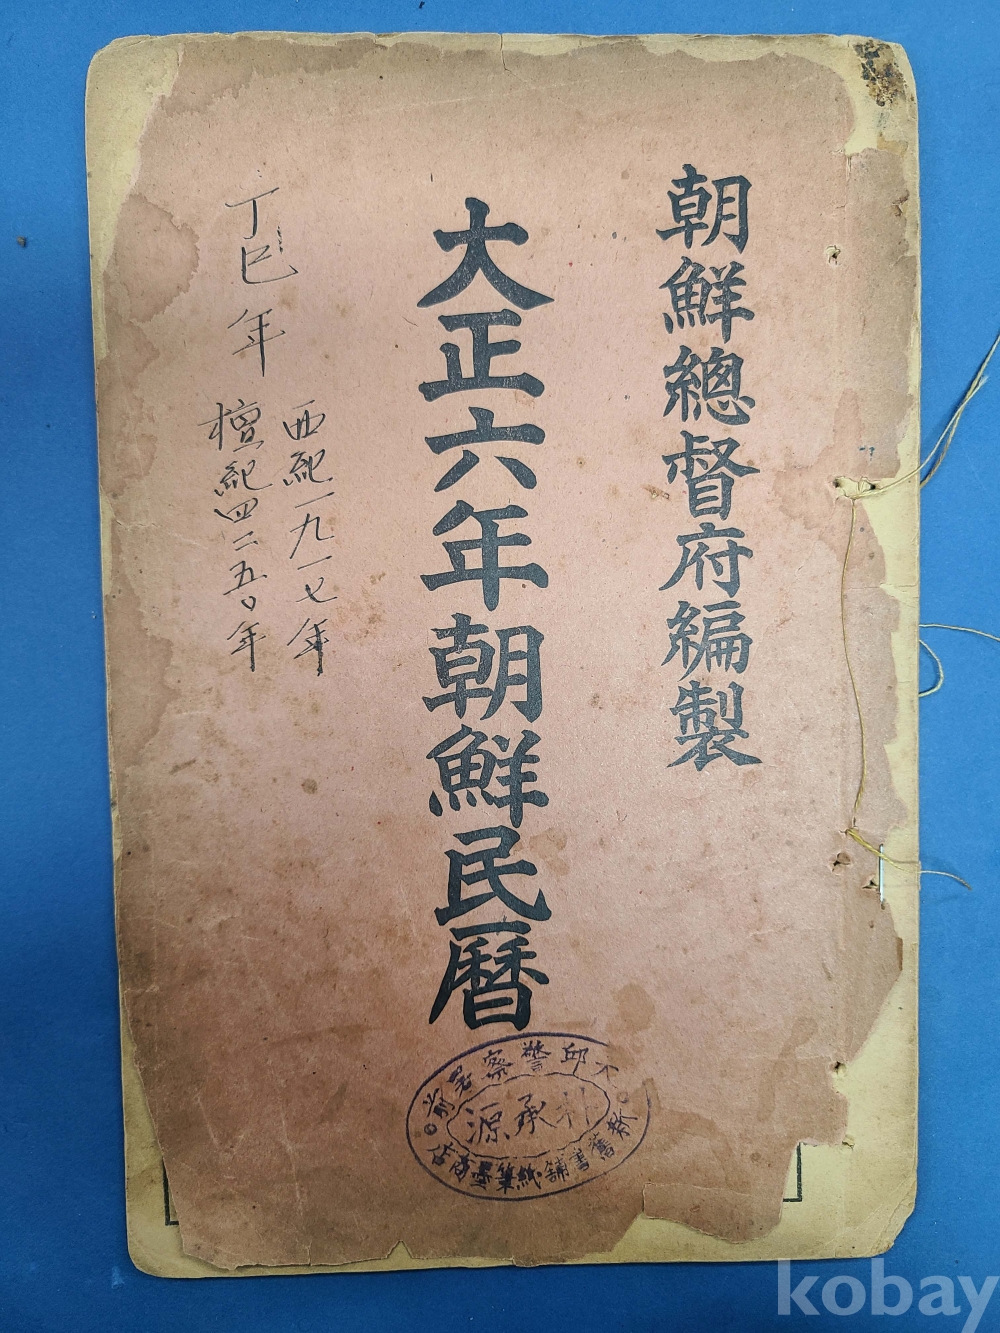 朝鮮總督府編製
大正六年朝鮮民暦
丁巳年
西紀一九一七年
檀紀四二五〇年
大邱警察署前
朴承源
新舊書舖紙筆墨商店
kobay